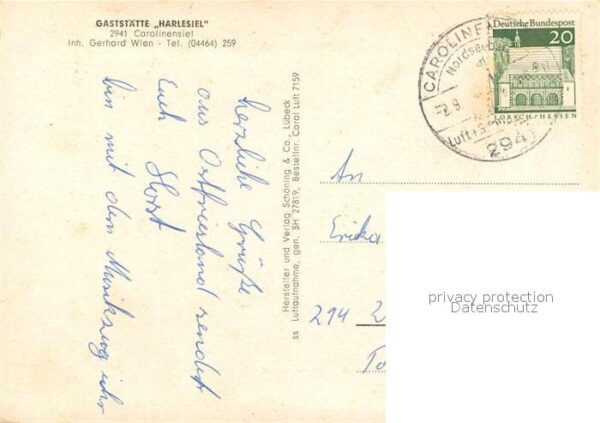 GASTSTÄTTE „HARLESIEL"
2941 Carolinensiel
Inh. Gerhard Wien - Tel. (04464) 259
Herzliche Grüße
aus Ostfriesland sendet
Euch Horst
bin mit dem Musikzug
Hersteller und Verlag Schöning & Co., Lübeck
ss Luftaufnahme, gen. SH 27819, Bestellnr. Carol Luft 7159
CAROLINE
Nordseebad
-2.9.
Luft+S
2941
Deutsche Bundespost
20
LORSCH/HESSEN
An
Erika
294
privacy protection
Datenschutz